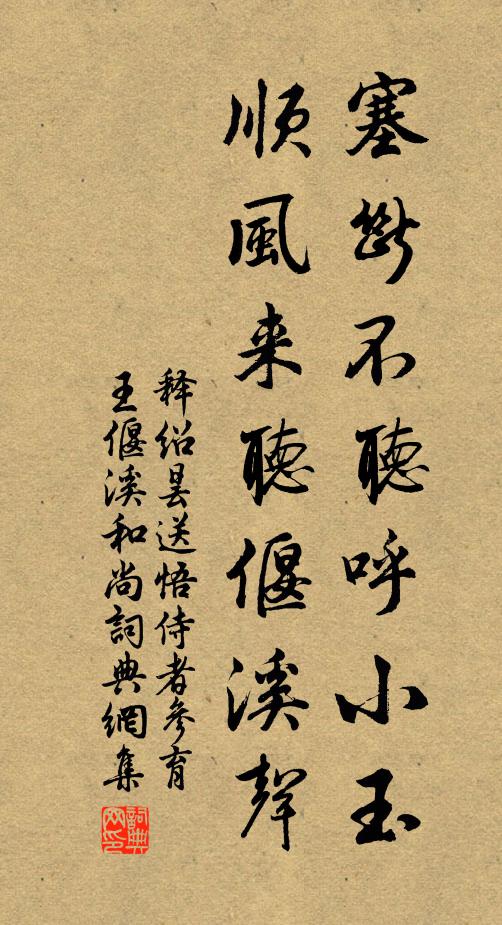 塞断不聽呼小玉
順風来聽偃溪聲
释绍昙送悟侍者参育
王偃溪和尚詞典網集
詞典网印